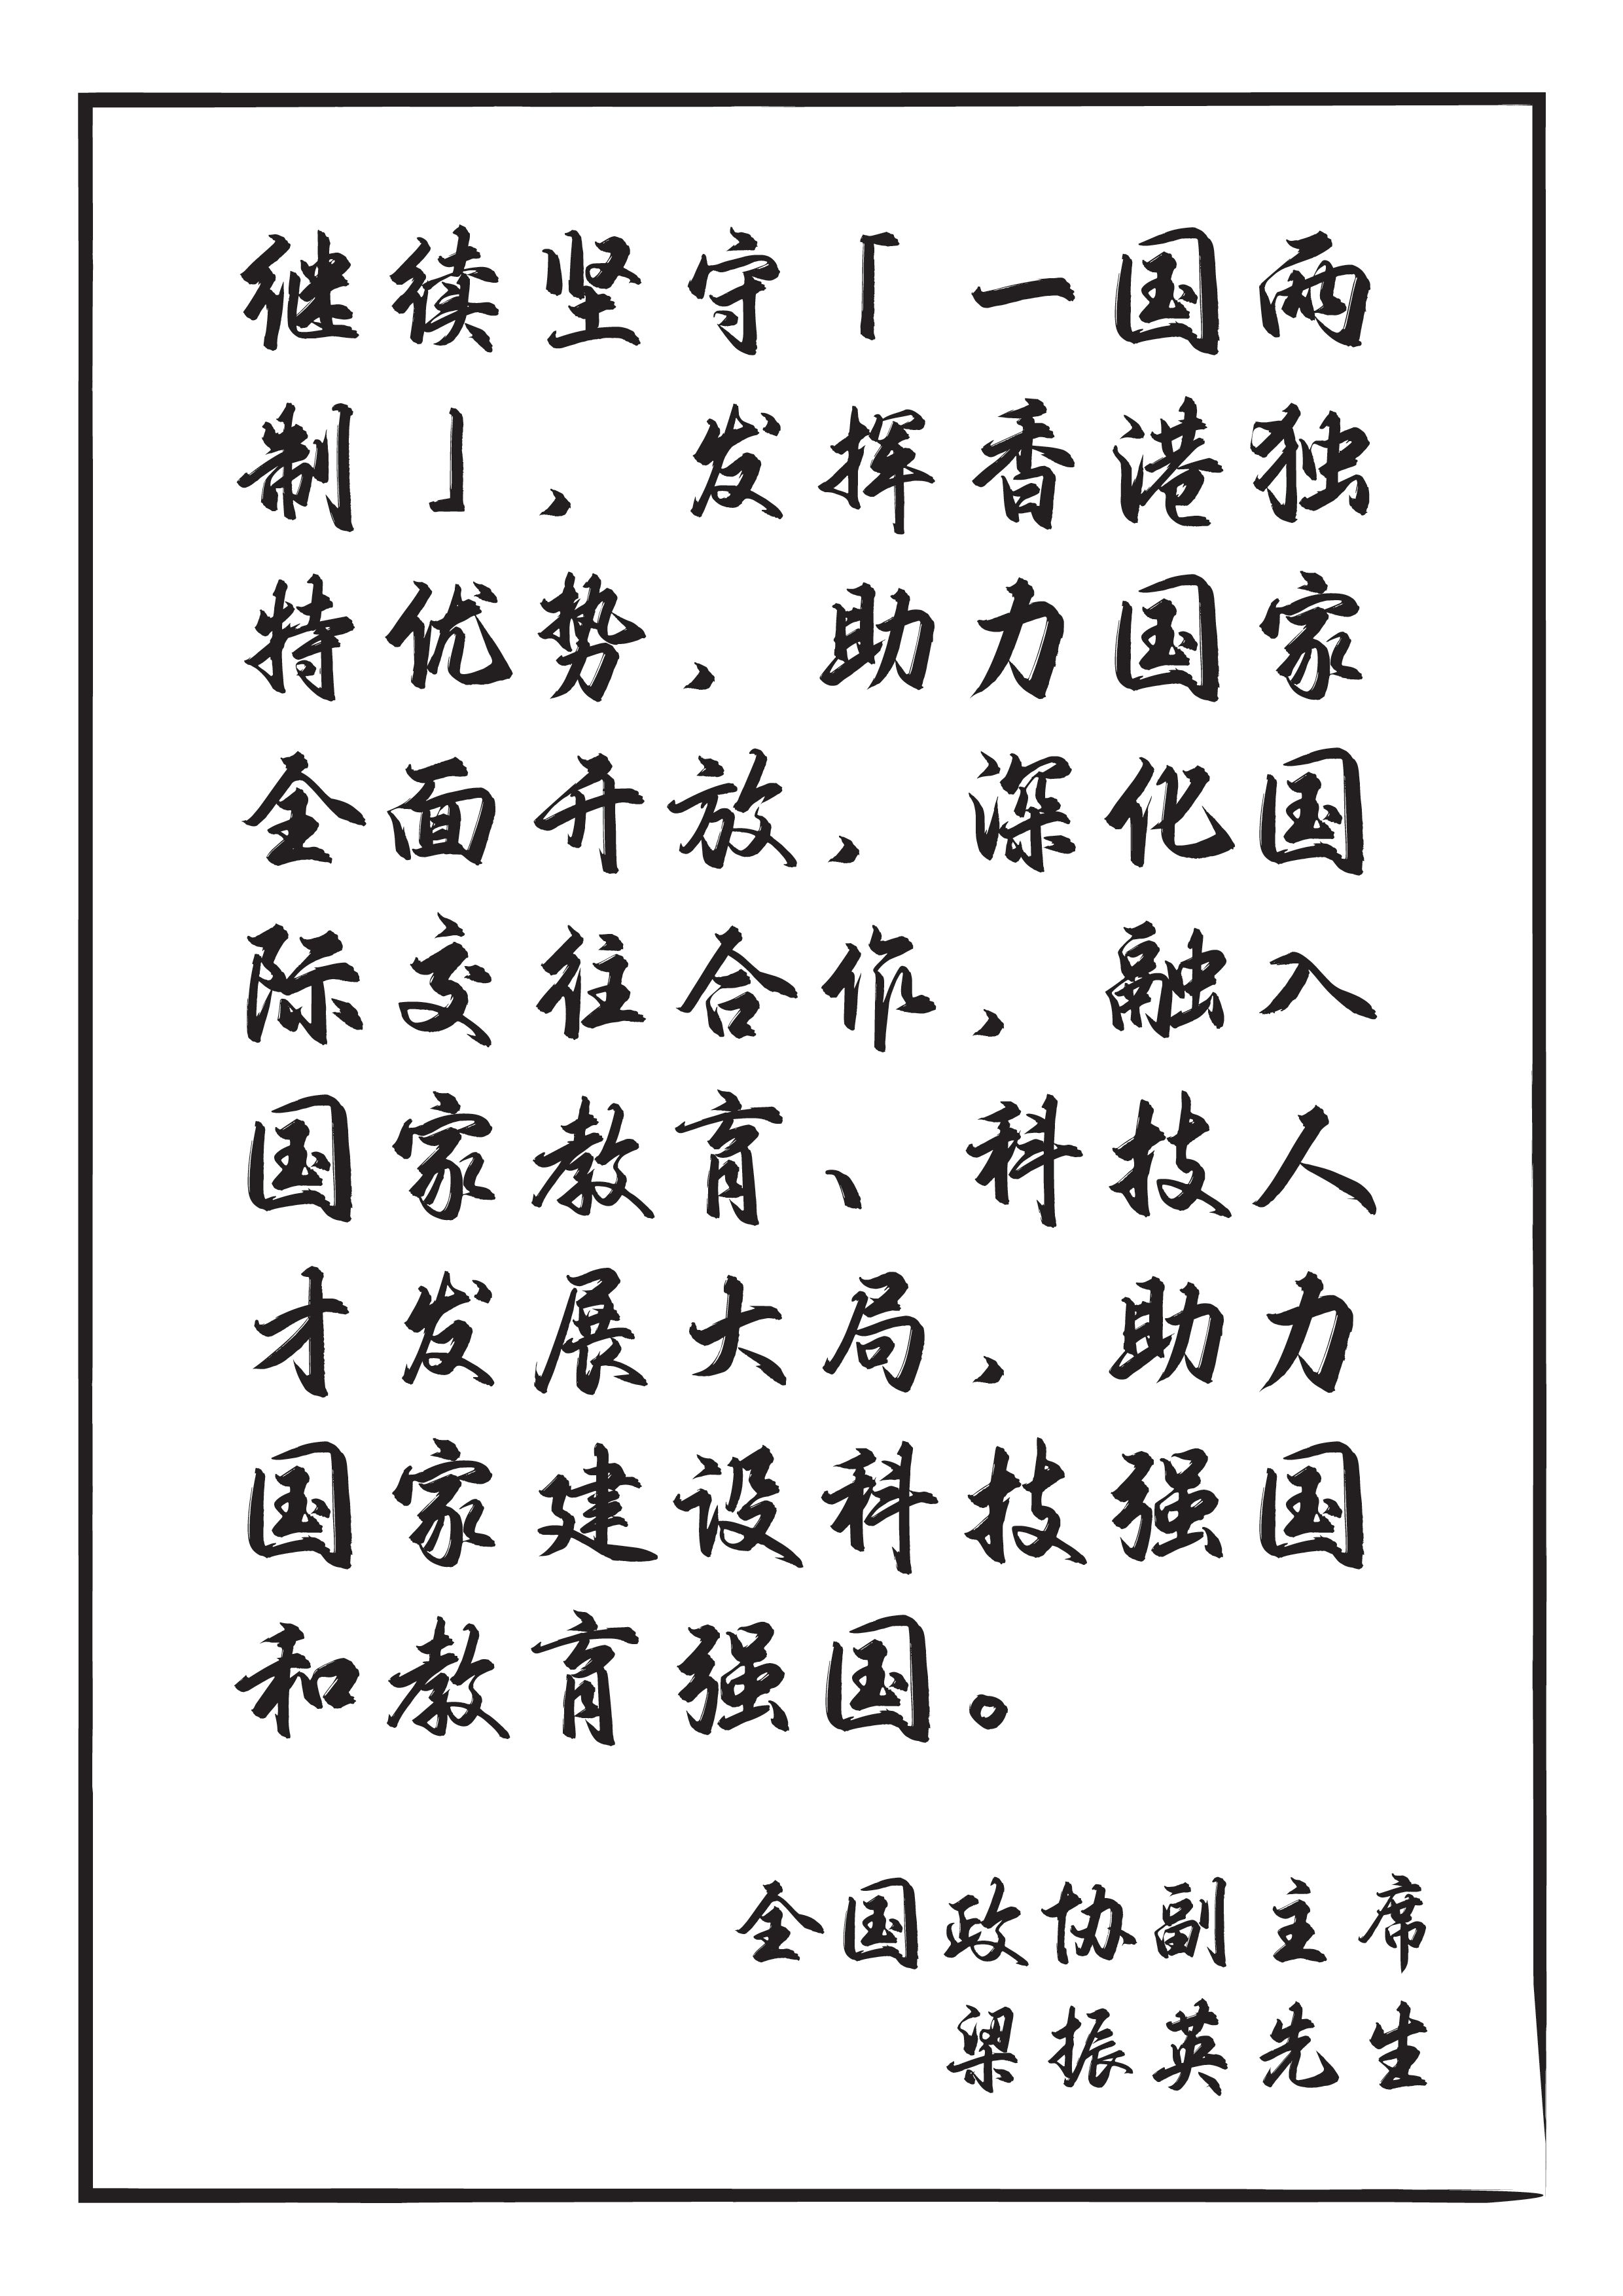 继续坚守「一国两
制」，发挥香港独
特优势，助力国家
全面开放，深化国
际交往合作，融入
国家教育、科技人
才发展大局，助力
国家建设科技强国
和教育强国。
全国政协副主席
梁振英先生